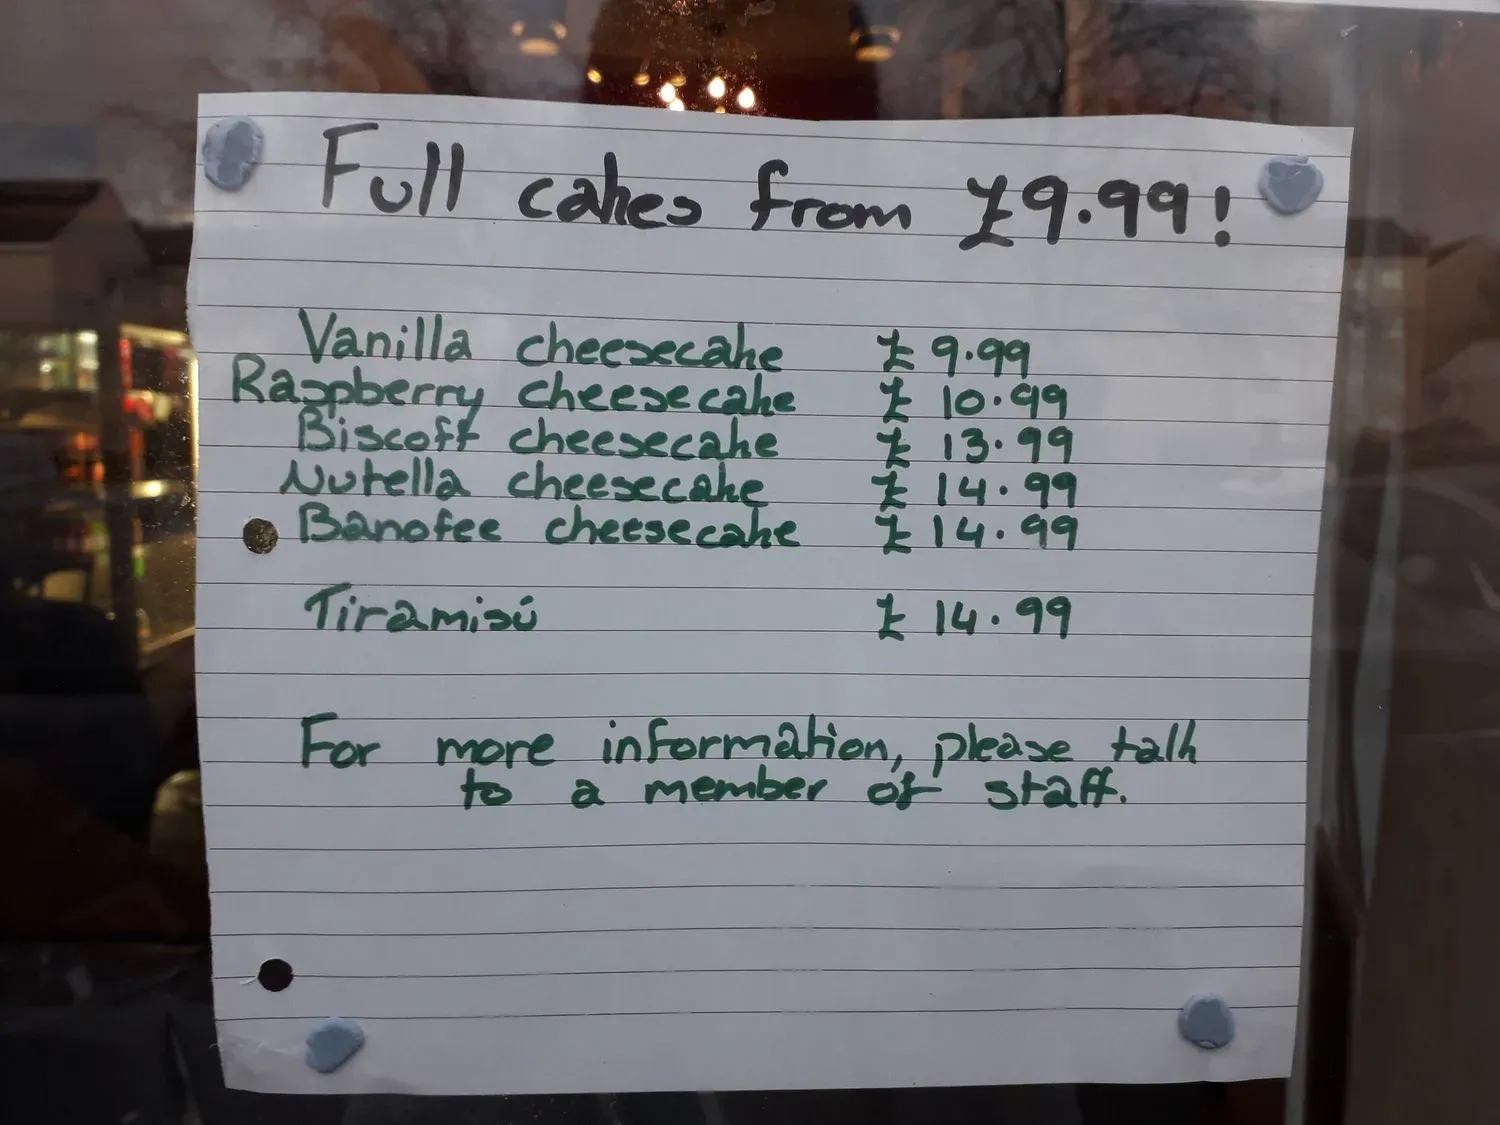 Full cakes from £9.99!
Vanilla cheesecake £9.99
Raspberry cheesecake £10.99
Biscoff cheesecake £13.99
Nutella cheesecake £14.99
Banofee cheesecake £14.99
Tiramisú £14.99
For more information, please talk
to a member of staff.